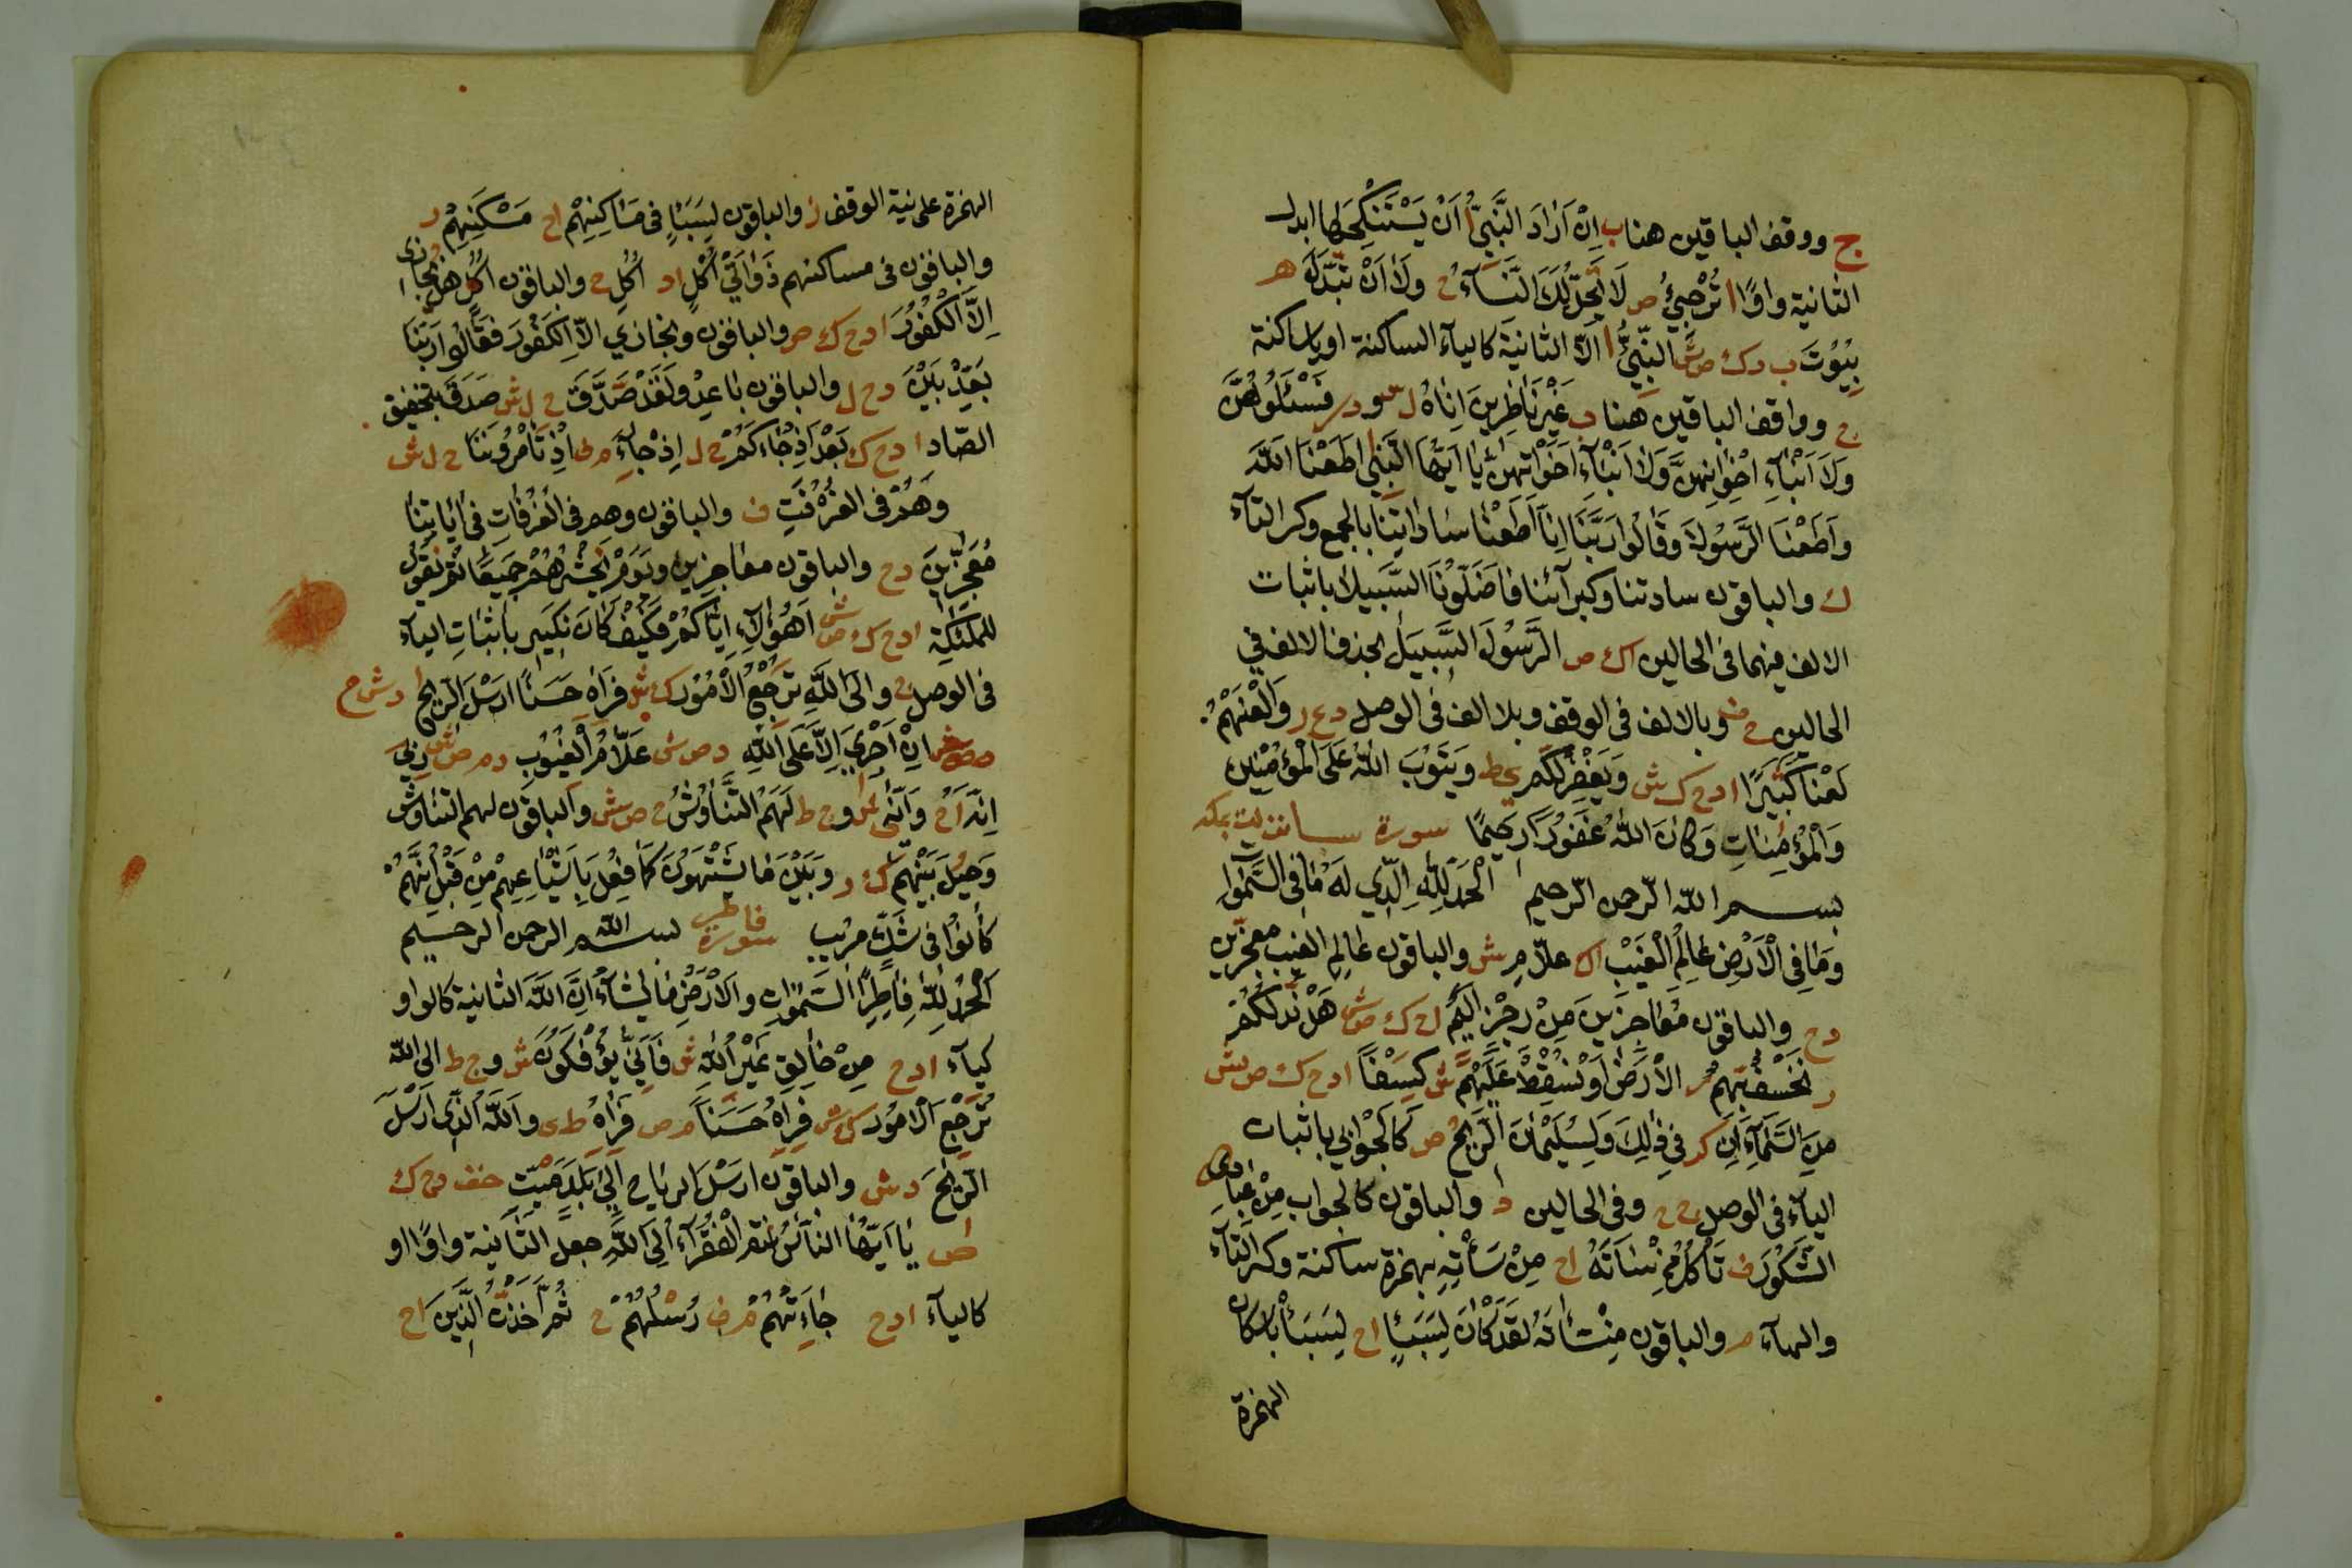 ج ووقف الباقين هنا ب اِنْ اَرَادَ النَّبِيُّ ا اَنْ يَسْتَنْكِحَهَا ابدل
الثانية واوًا ا تُرْجِيْ ص لَا تَحِلُّ لَكَ النِّسَآءُ ح وَلَا اَنْ تَبَدَّلَ ه
بِيُوْتَ ب د ك ص ش النَّبِيِّ ا اَلَّا الثانية كالياء الساكنة او ياء ساكنة
ج وواقف الباقين هنا ب غَيْرَ نَاظِرِينَ اِنَاهُ ل فَسْئَلُوهُنَّ
وَلَا اَبْنَآءِ اِخْوَانِهِنَّ وَلَا اَبْنَآءِ اَخَوَاتِهِنَّ يَا اَيُّهَا النَّبِي اَطَعْنَا اللّٰهَ
وَاَطَعْنَا الرَّسُولَا وَقَالُوا رَبَّنَا اِنَّا اَطَعْنَا سَادَاتِنَا بالجمع وكسر التاء
ك والباقون سادتنا وكبرآئنا فَاَضَلُّوْنَا السَّبِيلَا باثبات
الالف فيهما فى الحالين ا ك ص الرَّسُولَ السَّبِيلَ بحذف الالف فى
الحالين ح ف وبالالف فى الوقف وبلا الف فى الوصل د ع ر وَالْعَنْهُمْ
لَعْنًا كَثِيرًا ا د ح ك ش وَيَغْفِرْ لَكُمْ ى ط وَيَتُوْبَ اللّٰهُ عَلَى الْمُؤْمِنِينَ
وَالْمُؤْمِنَاتِ وَكَانَ اللّٰهُ غَفُورًا رَحِيمًا سورة سبا
بسم الله الرحمن الرحيم اَلْحَمْدُ لِلّٰهِ الَّذِي لَهُ مَا فِى السَّمٰوَات
وَمَا فِي الْاَرْضِ عَالِمُ الْغَيْبِ ا ك علّامِ ش والباقون عَالِمِ الغيب مُعَجِّزِين
د ح والباقون مُعَاجِزِينَ مِنْ رِجْزٍ اَلِيمٍ ا ح ك ص ش هَلْ نَدُلُّكُمْ
ر نَخْسِفْ بِهِمُ الْاَرْضَ اَوْ نُسْقِطْ عَلَيْهِمْ ش كِسْفًا ا د ح ك ص ش
مِنَ السَّمَآءِ اِنَّ فِي ذٰلِكَ وَلِسُلَيْمٰنَ الرِّيحُ ص كَالْجَوَابِي باثبات
الياء فى الوصل ج ح وفى الحالين د والباقون كالجواب مِنْ عِبَادِيَ
الشَّكُوْرُ ف تَأْكُلُ مِنْسَاتَهُ ا ح مِنْ سَأْتِهِ بهمزة ساكنة وكسر التاء
والهاء والباقون مِنْسَأَتَهُ لَقَدْ كَانَ لِسَبَئٍا ا ح لِسَبَأْ باسكان
الهمزة
الهمزة على نية الوقف ز والباقون لِسَبَاٍ فى مَسَاكِنِهِمْ ا ح مَسْكَنِهِمْ ر
والباقون فى مساكنهم ذَوَاتَيْ اُكْلٍ ا د اُكُلِ ح والباقون اُكُلٍ هل يُجازى
اِلَّا الْكَفُوْرُ ا د ح ك ص والباقون ونجازي الّا الكَفُورَ فَقَالُوا رَبَّنَا
بَعِّدْ بَيْنَ د ح ل والباقون بَاعِدْ وَلَقَدْ صَّدَّقَ ح ل ش صَدَقَ بتخفيف
الصّاد ا د ح ك بَعْدَ اِذْ جَاءَكُمْ ح ل اِذْ جَاءَ م ف اِذْ تَأْمُرُونَنَا ح ل ش
وَهُمْ فى الغُرْفَتِ ف والباقون وهم فى الغُرُفَاتِ فى اٰيَاتِنَا
مُعَجِّزِينَ د ح والباقون معاجزين وَيَوْمَ نَحْشُرُهُمْ جَمِيعًا ثُمَّ نَقُولُ
لِلْمَلٰئِكَةِ ا د ح ك ص ش اَهٰؤُلَآءِ اِيَّاكُمْ فَكَيْفَ كَانَ نَكِيرِ باثبات الياء
فى الوصل ج وَالَى اللّٰهِ تَرْجِعُ الْاُمُوْرُ ك ش فَرَاٰهُ حَسَنًا ارسل الرّيح د ش ح
اِنْ اَجْرِيَ اِلَّا عَلَى اللّٰهِ د ص ش عَلَّامُ الْغُيُوبِ د م ص ش رَبِّيَ
اِنَّهُ ا ح وَاَنّٰى ش و ج ط لَهُمُ التَّنَاؤُشُ ح ص ش والباقون لهم التناوش
وَحِيلَ بَيْنَهُمْ ك ر وَبَيْنَ مَا يَشْتَهُوْنَ كَمَا فُعِلَ بِاَشْيَاعِهِمْ مِنْ قَبْلُ اِنَّهُمْ
كَانُوا فى شَكٍّ مُرِيب سورة فاطر بسم الله الرحمن الرحيم
اَلْحَمْدُ لِلّٰهِ فَاطِرِ السَّمٰوَاتِ وَالْاَرْضِ مَا يَشَآءُ اِنَّ اللّٰهَ الثانية كالواو
كياء ا د ح مِنْ خَالِقٍ غَيْرِ اللّٰهِ ش فَاَنّٰى يُؤْفَكُوْنَ ش و ج ط الى الله
تَرْجِعُ الامُورُ ك ش فَرَاٰهُ حَسَنًا م ص فَرَاٰهُ ط ى وَاللّٰهُ الَّذِى اَرْسَلَ
الرِّيْحَ د ش والباقون ارسل الرياح اِلٰى بَلَدٍ مَيْتٍ حف د ح ك
ص يَا اَيُّهَا النَّاسُ اَنْتُمُ الْفُقَرَآءُ اِلَى اللّٰهِ جعل الثَّانِية واوًا او
كالياء ا د ح جَاءَتْهُمْ م ف رُسْلُهُمْ ح ثُمَّ اَخَذْتُ الَّذِينَ ا ح